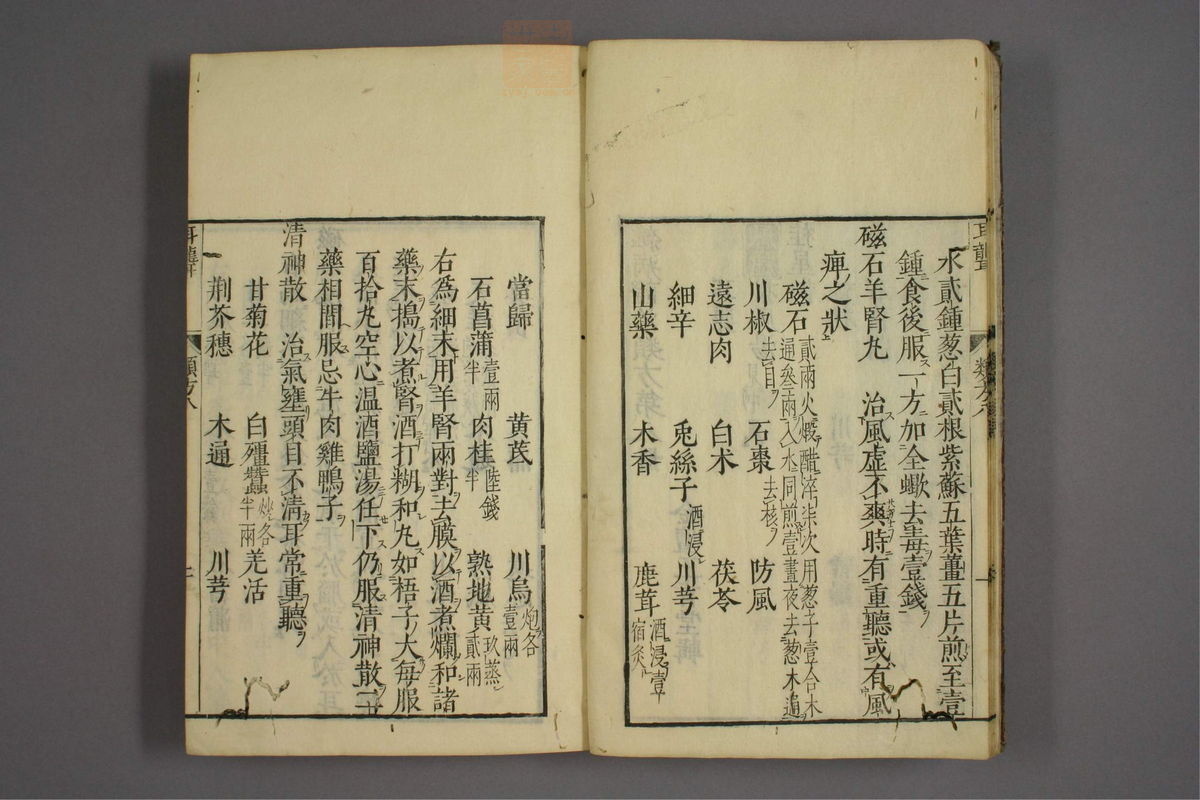 水貳鍾葱白貳根紫蘇五葉薑五片煎至壹
鍾食後服一方加全蠍去毒壹錢
磁石羊腎丸　治風虛不爽時有重聽或有風
痺之狀
磁石貳兩火煅醋淬柒次用葱子壹合木通叁兩入水同煎壹晝夜去葱木通
川椒去目　石棗去核　防風
遠志肉　白朮　茯苓
細辛　兎絲子酒浸　川芎
山藥　木香　鹿茸酒浸壹宿炙
當歸　黃芪　川烏炮各壹兩
石菖蒲壹兩半　肉桂陸錢半　熟地黃玖蒸貳兩
右爲細末用羊腎兩對去膜以酒煮爛和諸
藥末搗以煮腎酒打糊和丸如梧子大每服
百拾丸空心温酒鹽湯任下仍服清神散二
藥相間服忌牛肉雞鴨子
清神散　治氣壅頭目不清耳常重聽
甘菊花　白殭蠶炒各半兩　羌活
荆芥穗　木通　川芎
耳聾
類方八
耳聾
類方八